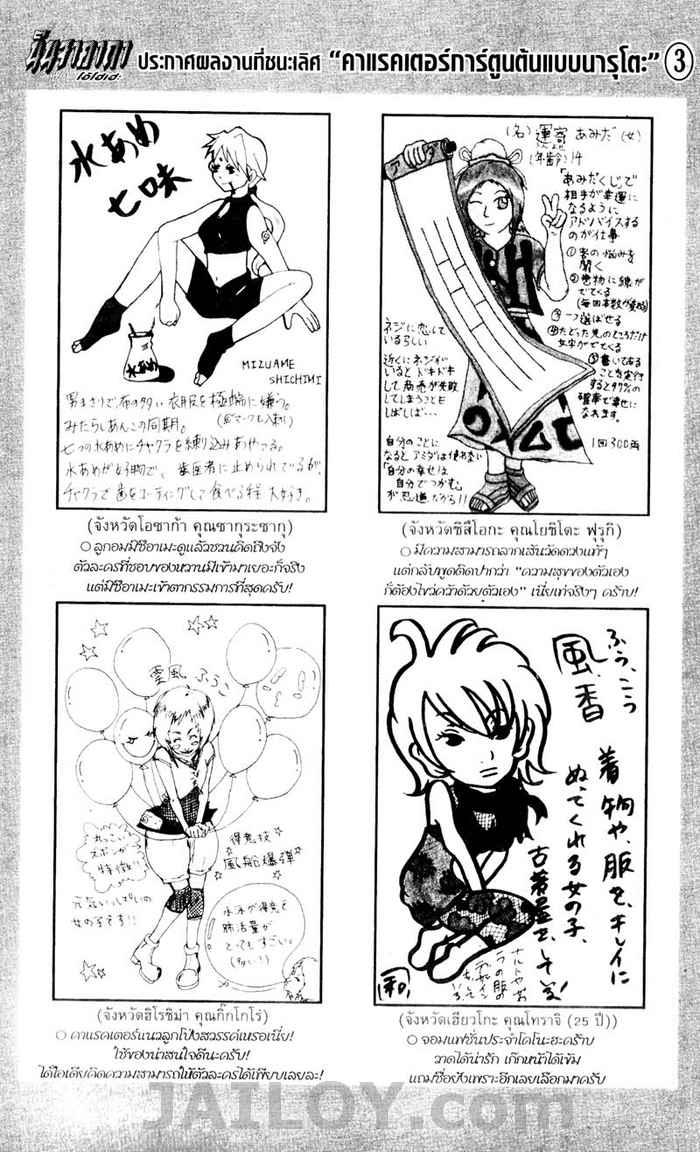 ประกาศผลงานที่ชนะเลิศ “คาแรคเตอร์การ์ตูนต้นแบบนารุโตะ” ③
水あめ
七味
水あめ
MIZUAME
SHICHIMI
男まさりで布の多い衣服を極端に嫌う。
みたらしあんこの同期。
七つの水あめにチャクラを練り込みあやつる。
水あめが好物で、
に止められているが、
チャクラで歯をコーティングして食べる程 大好き。
(จังหวัดโอซาก้า คุณซากุระซากุ)
○ ลูกอมมิซึอาเมะดูแล้วชวนคิดถึงจัง
ตัวละครที่ชอบของหวานมีเข้ามาเยอะก็จริง
แต่มิซึอาเมะเข้าตากรรมการที่สุดครับ!
(名) 運寄 あみだ (女)
(年齢) 14
「あみだくじ」で
相手が幸運に
なるように
アドバイスする
のが仕事
① 客の悩みを
聞く
② 巻物に線が
でてくる
③ 一つ選ばせる
④ たどった先のところだけ
文字がでてくる
⑤ 書いてある
ことを実行
すると97%の
確率で幸せに
なれます。
1回300両
ネジに恋して
いるらしい
近くにネジが
いると ドキドキ
して商売が失敗
してしまうことも
しばしば…
自分のことに
なると アミダは使わない
「自分の幸せは
自分でつかむ」
が忍道だから!!
(จังหวัดชิสึโอกะ คุณโยชิโตะ ฟุรุกิ)
○ มีความสามารถลากเส้นวัดดวงแท้ๆ
แต่กลับพูดติดปากว่า “ความสุขของตัวเอง
ก็ต้องไขว่คว้าด้วยตัวเอง” เนี่ยเท่จริงๆ คร้าบ!
雲風 ふうこ
丸っこい
ズボンが
特徴!!
元気いっぱいの
女の子です!!
得意技
風船爆弾
水泳が得意で
肺活量が
とってもすごい。
(จังหวัดฮิโรชิม่า คุณกิ๊กโกโร่)
○ คาแรคเตอร์แนวลูกโป่งสวรรค์เหรอเนี่ย!
ใช้ของน่าสนใจดีนะครับ!
ได้ไอเดียคิดความสามารถให้ตัวละครได้เพียบเลยละ!
風香
着物や、服を、キレイに
ぬってくれる女の子、
古着屋を、して
(จังหวัดเฮียวโกะ คุณโทราจิ (25 ปี))
○ จอมแฟชั่นประจำโคโนะฮะคร้าบ
วาดได้น่ารัก เก๊กหน้าได้เข้ม
แถมชื่อยังเพราะอีกเลยเลือกมาครับ
JAILOY.com